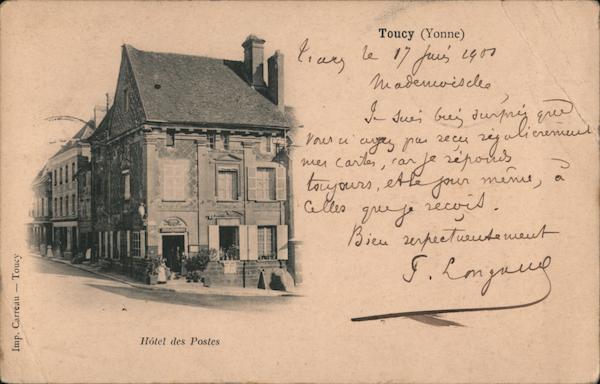 Toucy (Yonne)
le 17 Juin 1901
Mademoiselle,
Je suis bien surpris que
vous n'ayez pas reçu régulièrement
mes cartes, car je réponds
toujours, et le jour même, à
celles que je reçois.
Bien respectueusement
Hôtel des Postes
Imp. Carreau — Toucy